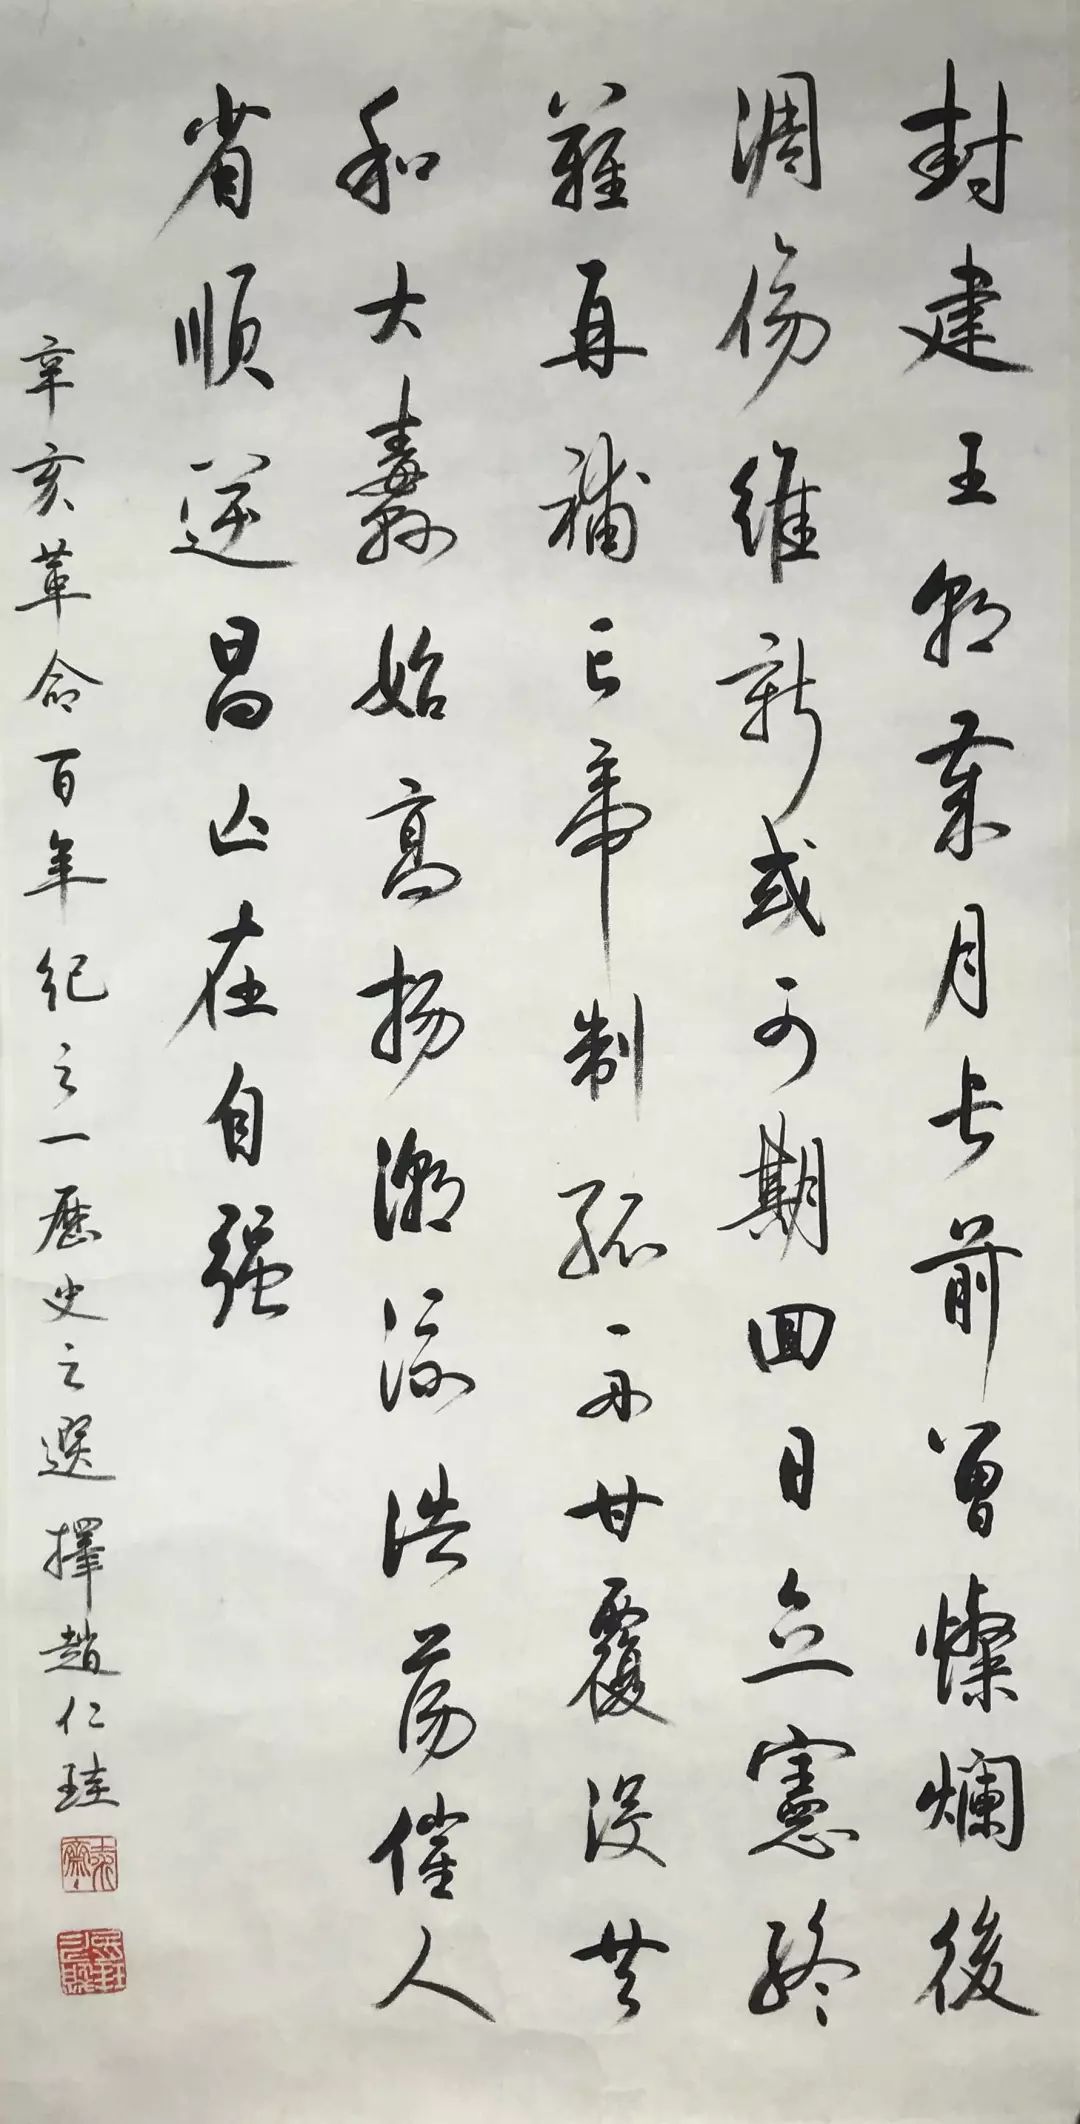 封建王朝歲月長前曾燦爛後
凋傷維新或可期回日立憲終
難再補亡帝制孤舟甘覆没共
和大纛始高揚潮流浩蕩催人
省順逆昌亡在自强
辛亥革命百年紀之一歷史之選擇趙仁珪